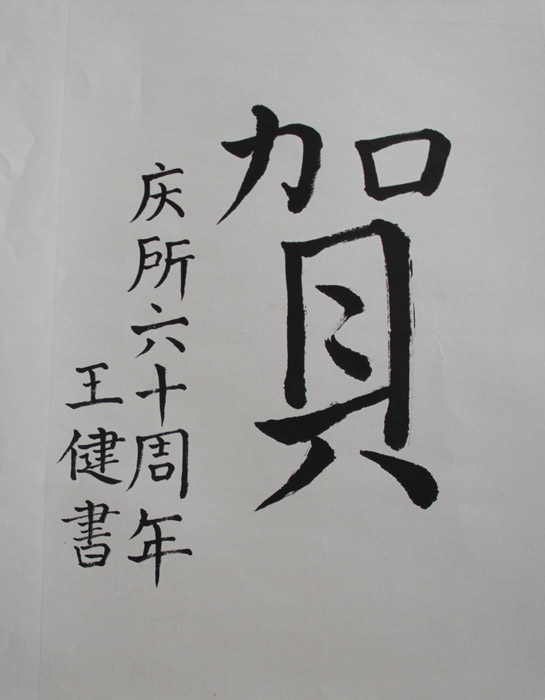 賀
庆所六十周年
王健書